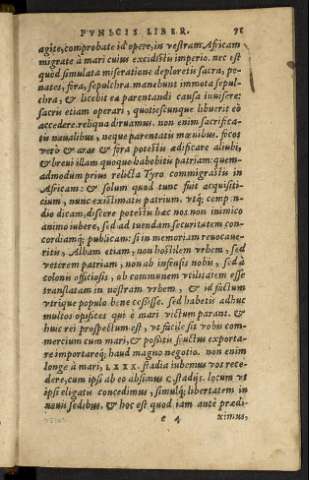 PVNICIS LIBER. 71
agite, comprobate id opere, in vestram Africam
migrate à mari cuius excidistis imperio. nec est
quòd simulata miseratione deploretis sacra, pe-
nates, fora, sepulchra manebunt immota sepul-
chra, & licebit ea parentandi causa inuisere:
sacris etiam operari, quotiescunque libuerit eò
accedere. reliqua diruamus. non enim sacrifica-
tis naualibus, neque parentatis mœnibus. focos
verò & aras & fora potestis ædificare alicubi,
& breui illam quoque habebitis patriam: quem-
admodum prius relicta Tyro commigrastis in
Africam: & solum quod tunc fuit acquisiti-
cium, nunc existimatis patrium. vtq; comp ͤn-
dio dicam, discere potestis hæc nos non inimico
animo iubere, sed ad tuendam securitatem con-
cordiamq; publicam: si in memoriam reuocaue-
ritis, Albam etiam, non hostilem vrbem, sed
veterem patriam, non ab infensis nobis, sed à
colonis officiosis, ob communem vtilitatem esse
translatam in nostram vrbem. & id factum
vtrique populo bene cessisse. sed habetis adhuc
multos opifices qui è mari victum parant. &
huic rei prospectum est, vt facile sit vobis com-
mercium cum mari, & positis fructus exporta-
re importareq; haud magno negotio. non enim
longè à mari, LXXX. stadia iubemus vos rece-
dere, cum ipsi ab eo absimus c. stadijs. locum vt
ipsi eligatis concedimus, simulq; libertatem in
nouis sedibus. & hoc est quod iam antè prædi-
e 4 ximus,